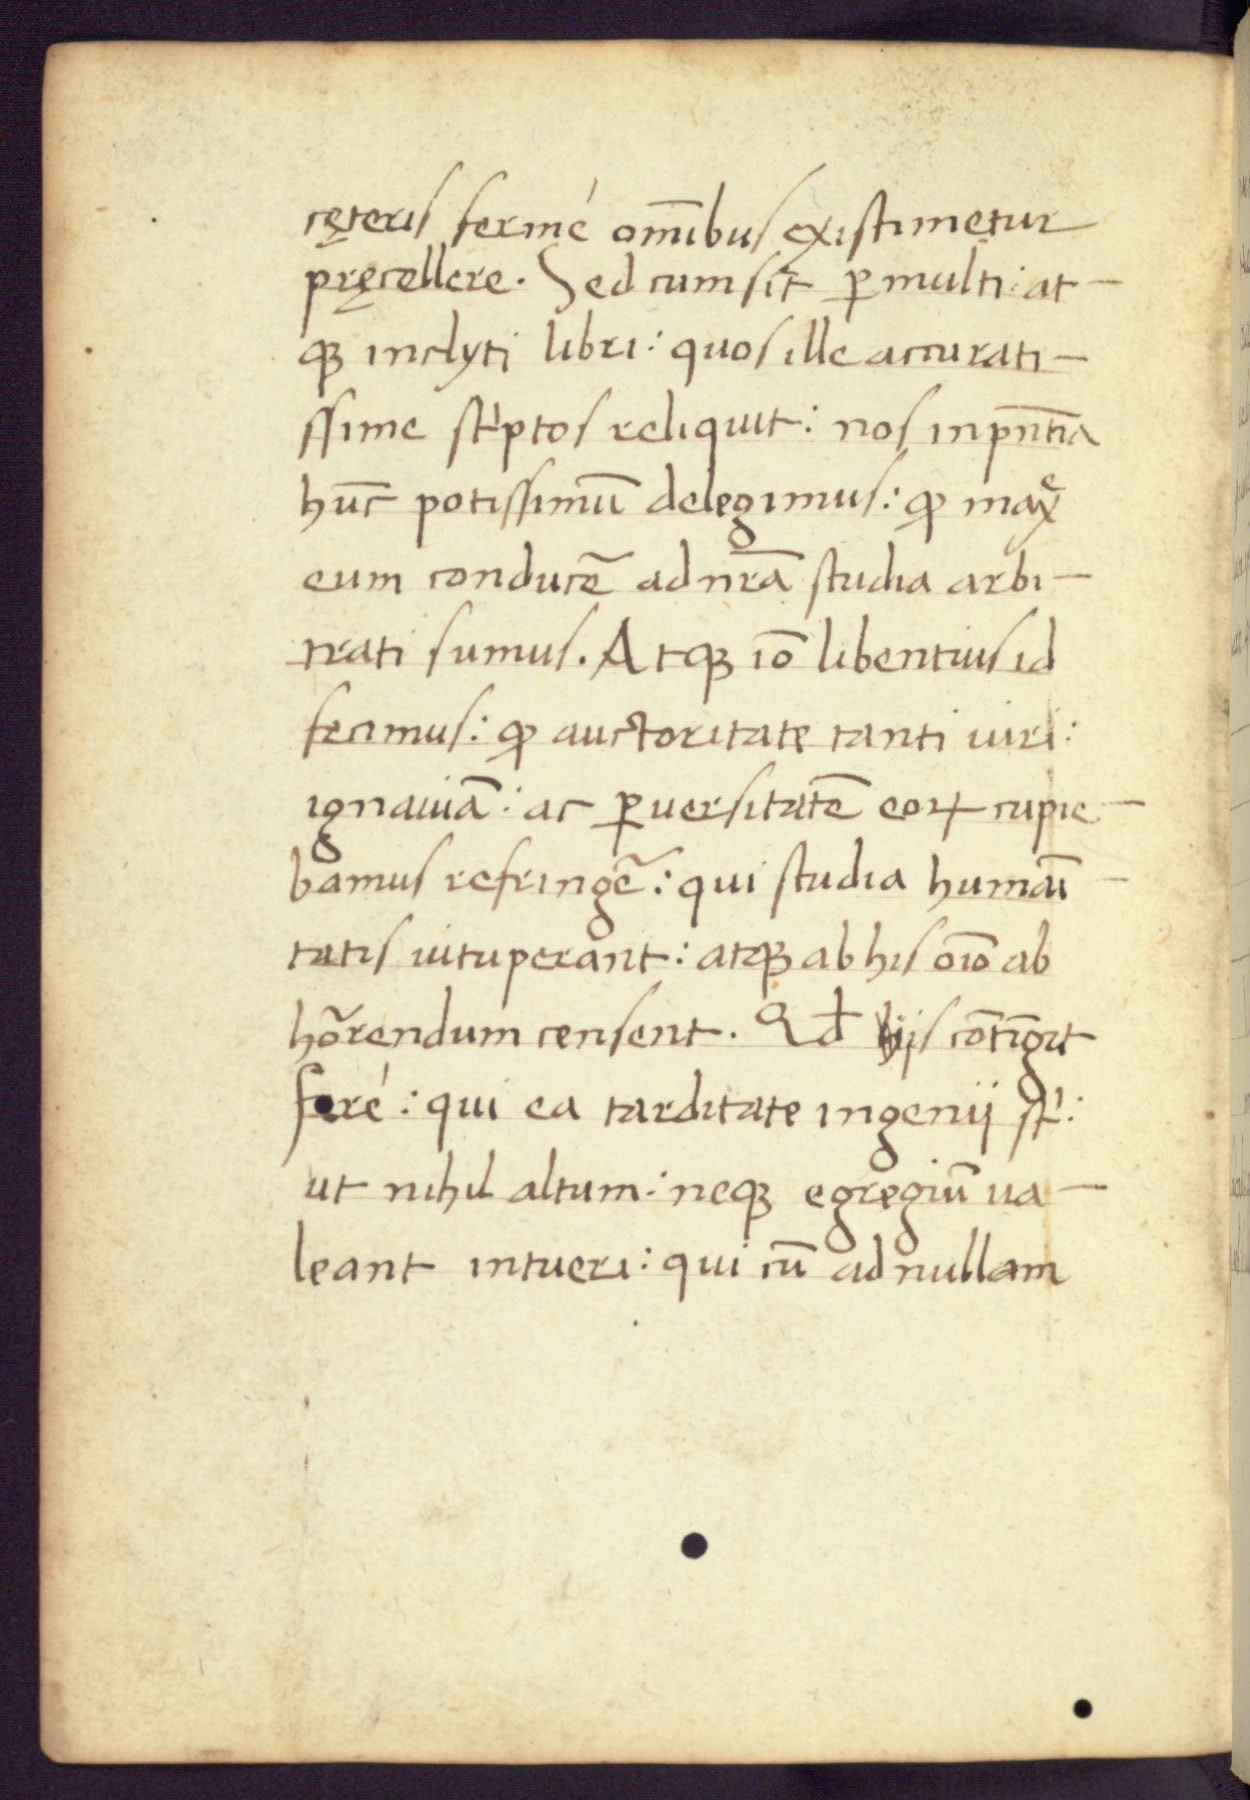 cęteris fermé om̄ibus existimetur
pręcellere. Sed cum sīt ꝑmulti: at-
qꝫ inclyti libri: quos ille accurati-
ssime scͥptos reliquit: nos in pn̄tia
hūc potissimū delegimus: ꝙ maxͤ
eum conducē ad nrā̄ studia arbi-
trati sumus. Atqꝫ iō libentius id
fecimus: ꝙ auctoritate tanti uiri:
ignauiā: ac ꝑuersitatē eoꝝ cupie-
bamus refringē: qui studia humaī-
tatis uituperant: atqꝫ ab his oīo ab
hōrendum censent. Qđ iis cōtīgit
feré: qui ea tarditate ingenij sͭ:
ut nihil altum: neqꝫ egregiū ua-
leant intueri: qui cū ad nullam